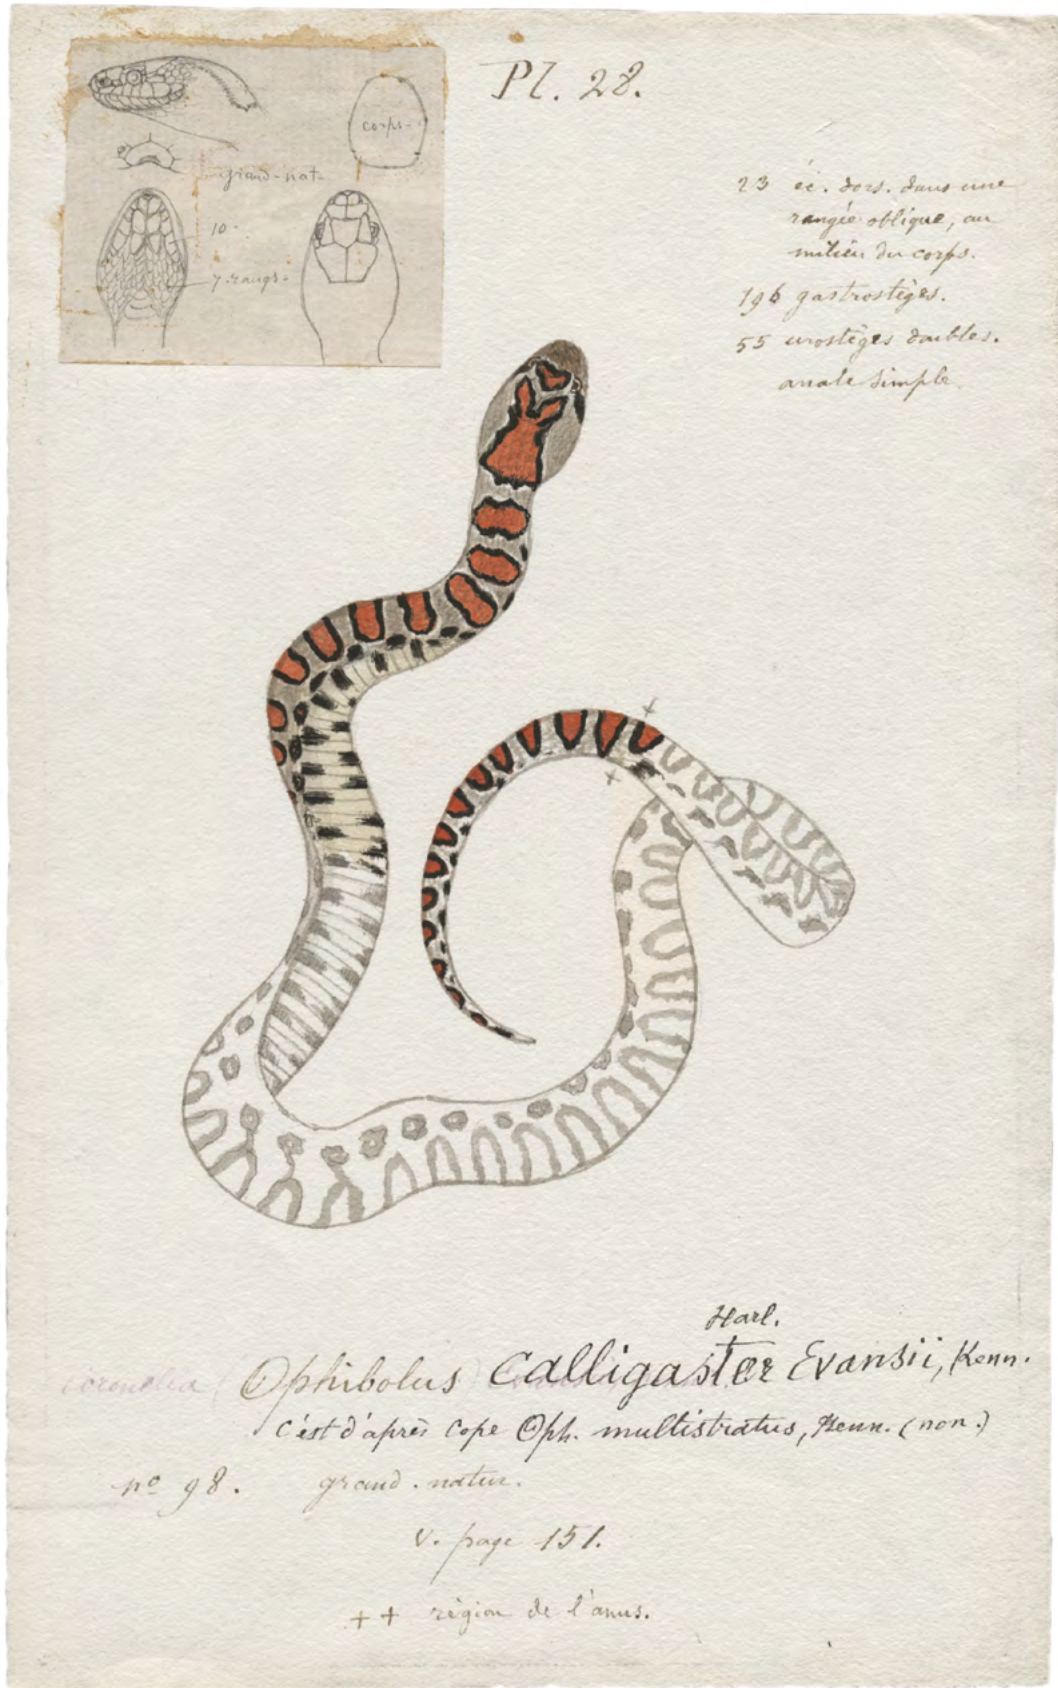 Pl. 28.
corps.
grand. nat.
10
7. rangs.
23 éc. dors. dans une
rangée oblique, au
milieu du corps.
196 gastrostèges.
55 urostèges doubles.
anale simple.
Harl.
Ophibolus Calligaster Evansii, Kenn.
c'est d'après Cope Oph. multistratus, Kenn. (non.)
no 98. grand. natur.
v. page 151.
++ région de l'anus.